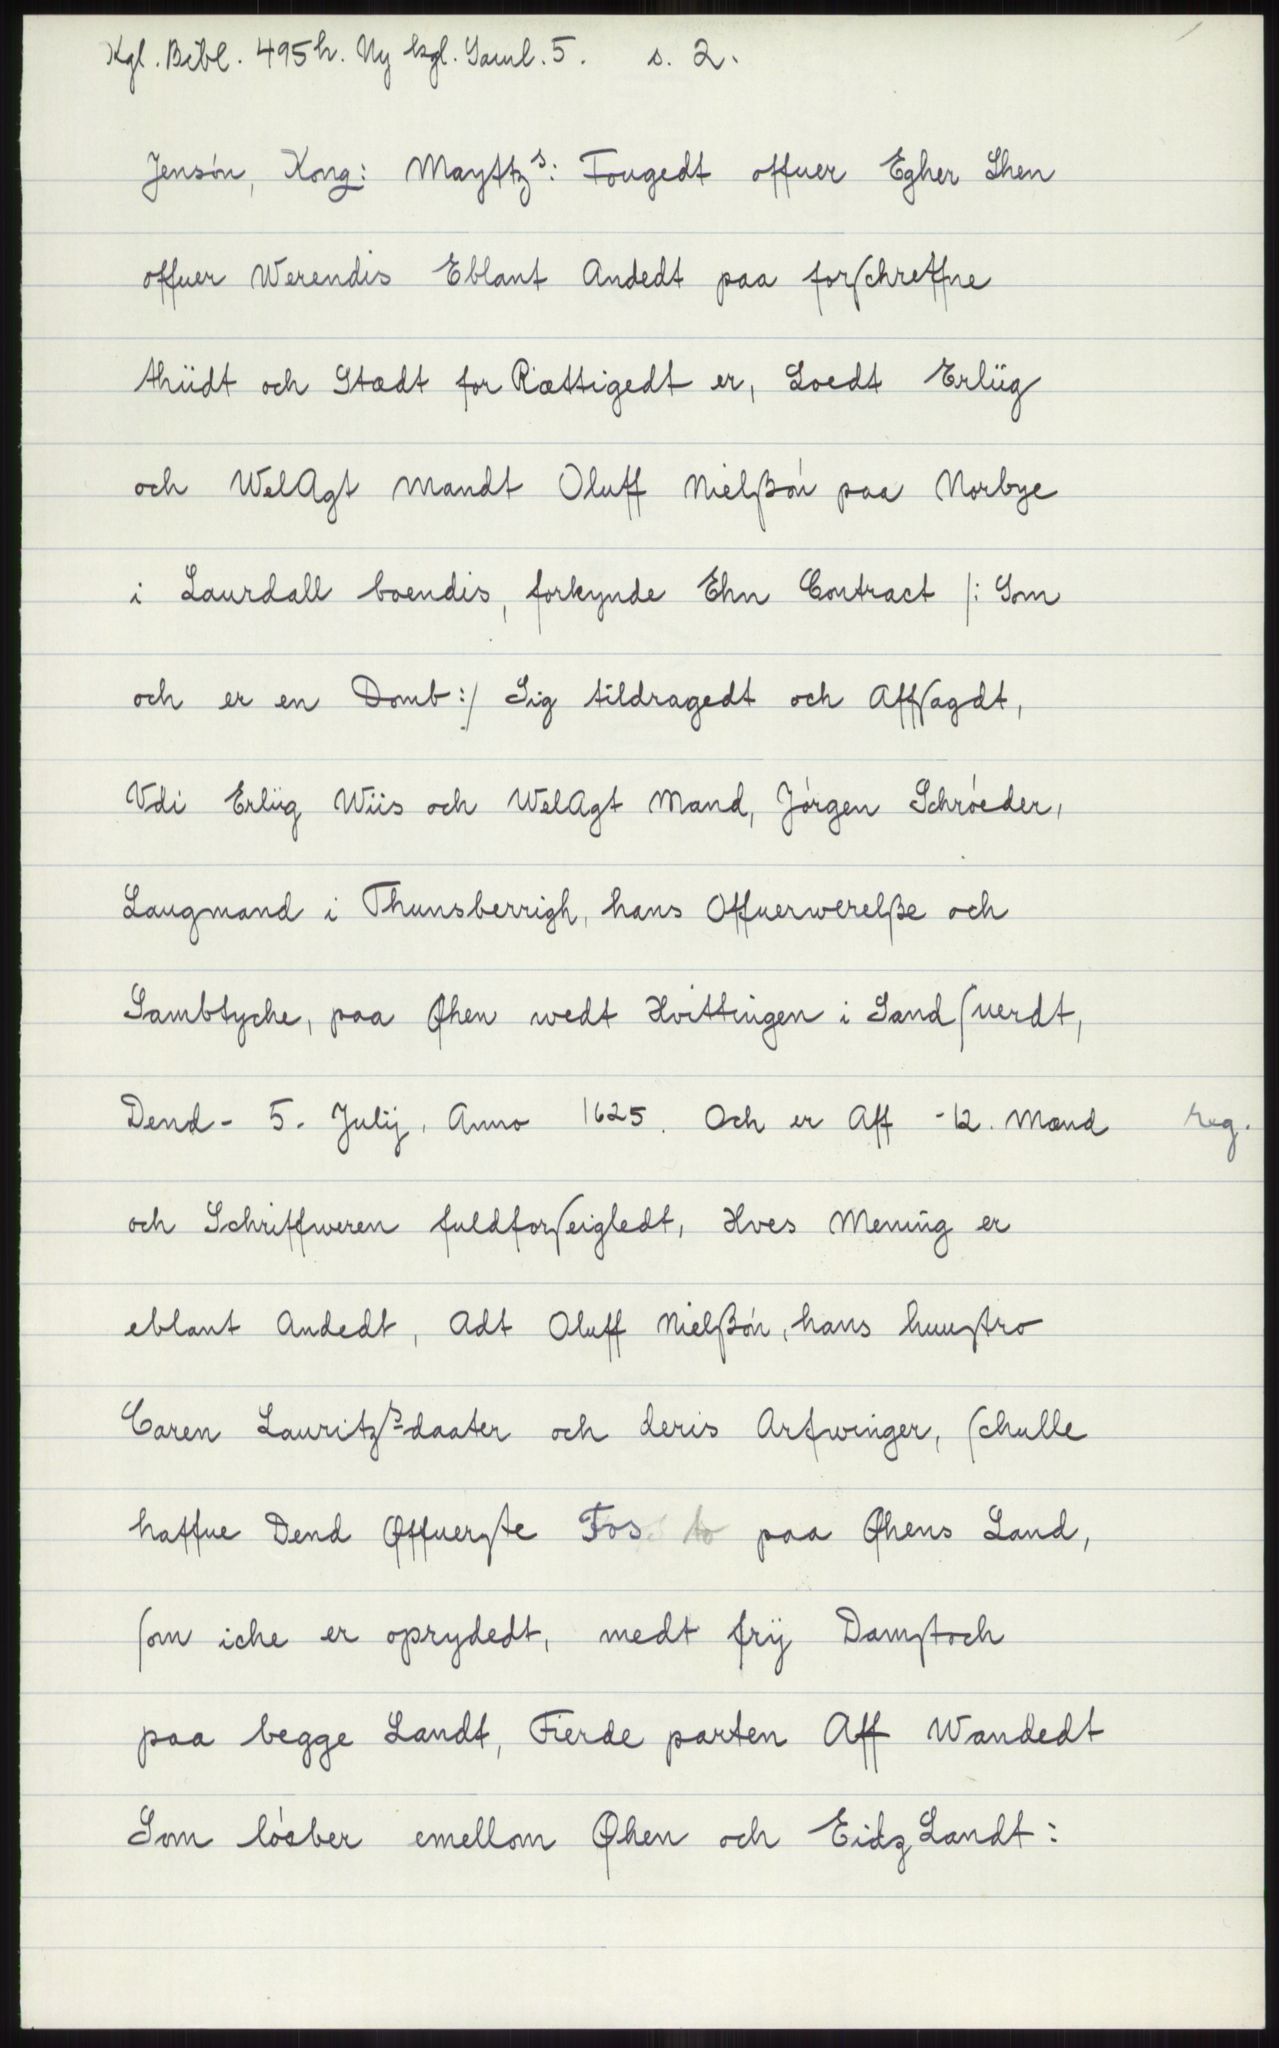 Kgl. Bibl. 495 h. Ny kgl. Saml. 5. s. 2.
Jensón, Kong: Mayſtz s: Fougedt offuer Egher Lhen
offuer Werendis Eblant Andedt paa forſchreffne
thüdt och Stædt for Rættigedt er, Loedt Erlüg
och WelAgt Mandt Oluff Nielßón paa Norbye
i Laurdall boendis, forkynde Ehn Contract /: Som
och er en Domb :/ Sig tildragedt och Affſagdt,
Vdi Erlüg Wiis och WelAgt Mand, Jórgen Schróeder,
Laugmand i Thunsberrigh, hans Offuerwerelße och
Sambtyche, paa Øhen wedt Hvittingen i Sandſuerdt,
Dend - 5. Julÿ, Anno 1625. Och er Aff - 12. Mænd reg.
och Schriffweren fuldforſeigledt, Hves Mening er
eblant Andedt, Adt Oluff Nielßón, hans huuſtro
Caren Lauritzs-daater och deris Arfwinger, ſchulle
haffue Dend Øffuerſte Fos to paa Øhens Land,
ſom iche er oprydedt, medt frÿ Damſtoch
paa begge Landt, Fierde parten Aff Wandedt
Som lóeber emellom Øhen och Eidz Landt: